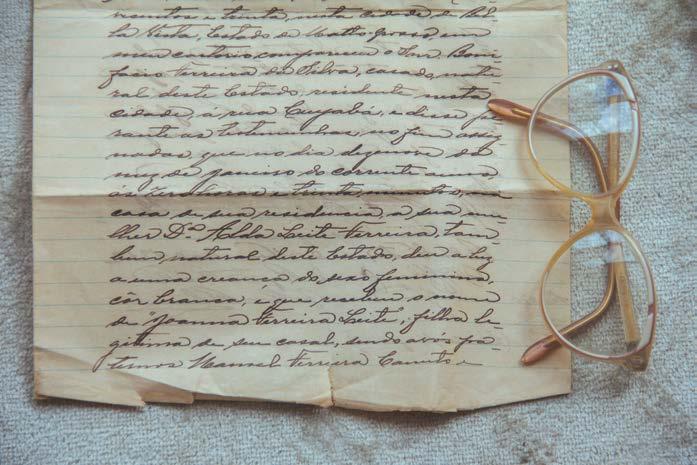 centos e trinta, nesta cidade de Bel-
la Vista, Estado de Matto Grosso, em
meu cartorio, compareceu o Snr. Boni-
facio Ferreira da Silva, casado, natu-
ral deste Estado, residente nesta
cidade á rua Cuyabá, e disse pe-
rante as testemunhas, no fim assi-
nadas, que, no dia do
mez de Janeiro do corrente anno
ás horas e trinta minutos, na
casa de sua residencia, a sua mu-
lher D.ª Alda Leite Ferreira, tam-
bem, natural deste Estado, deu a luz
a uma creança do sexo feminino,
côr branca, e que recebeu o nome
de "Joanna Ferreira Leite", filha le-
gitima de seu casal, sendo avos pa-
ternos Manoel Ferreira e